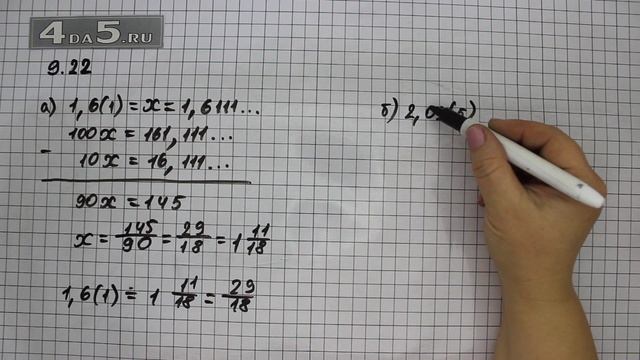 4DA5.RU
9.22
а) 1,6(1) = x = 1,6111...
100x = 161,111...
- 10x = 16,111...
90x = 145
x = 145/90 = 29/18 = 1 11/18
1,6(1) = 1 11/18 = 29/18
б) 2,0